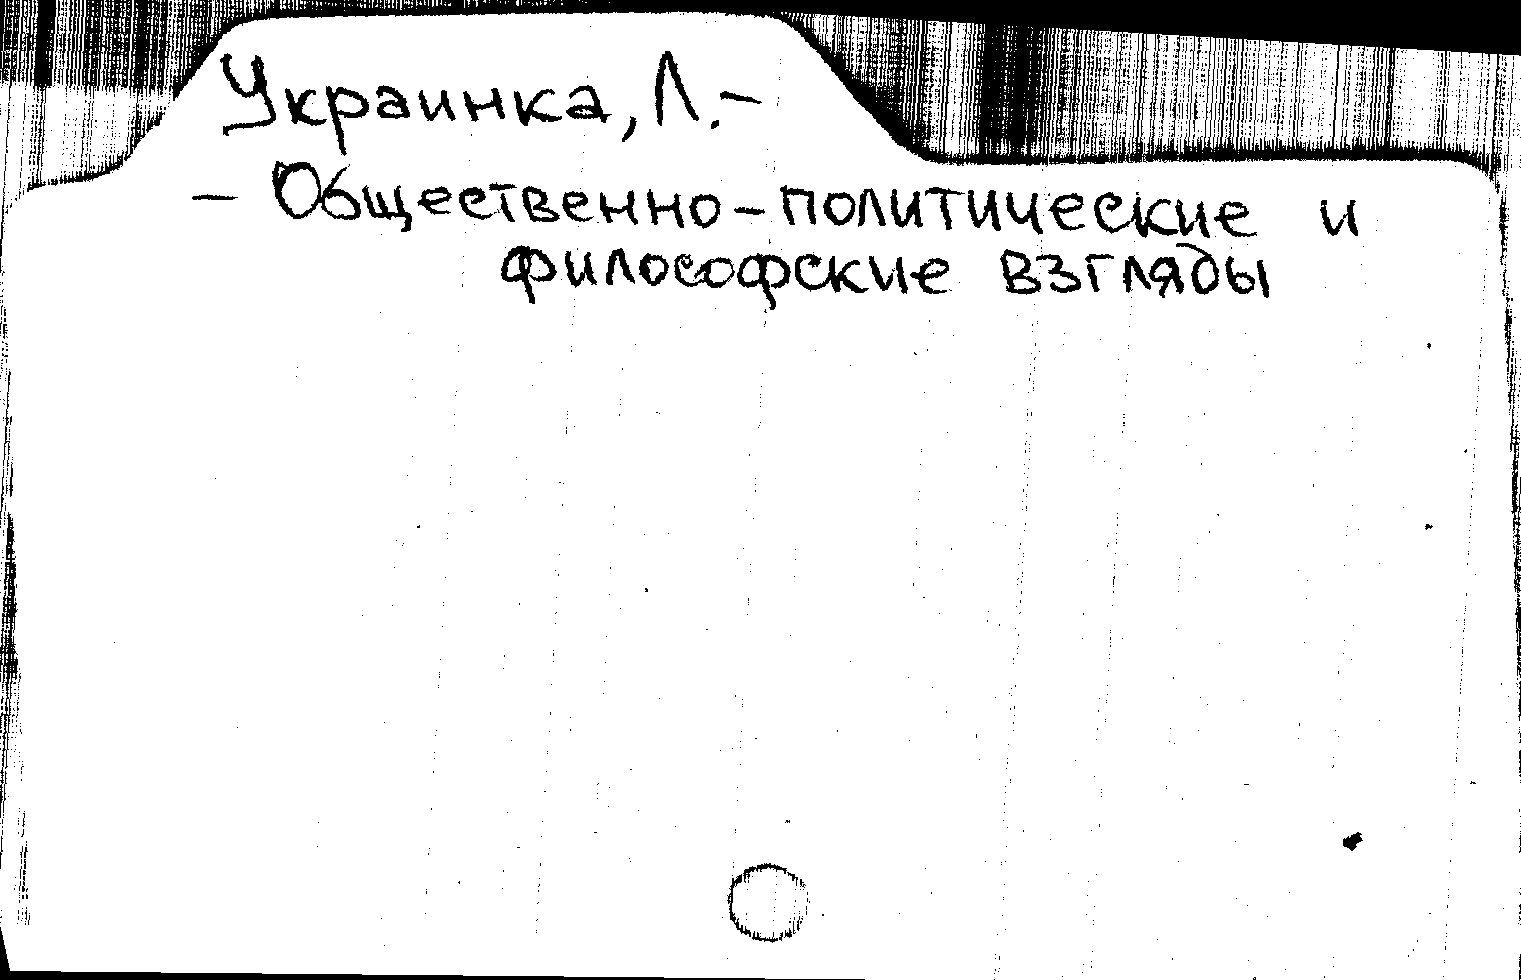 Украинка, Л. –
– Общественно-политические и
философские взгляды